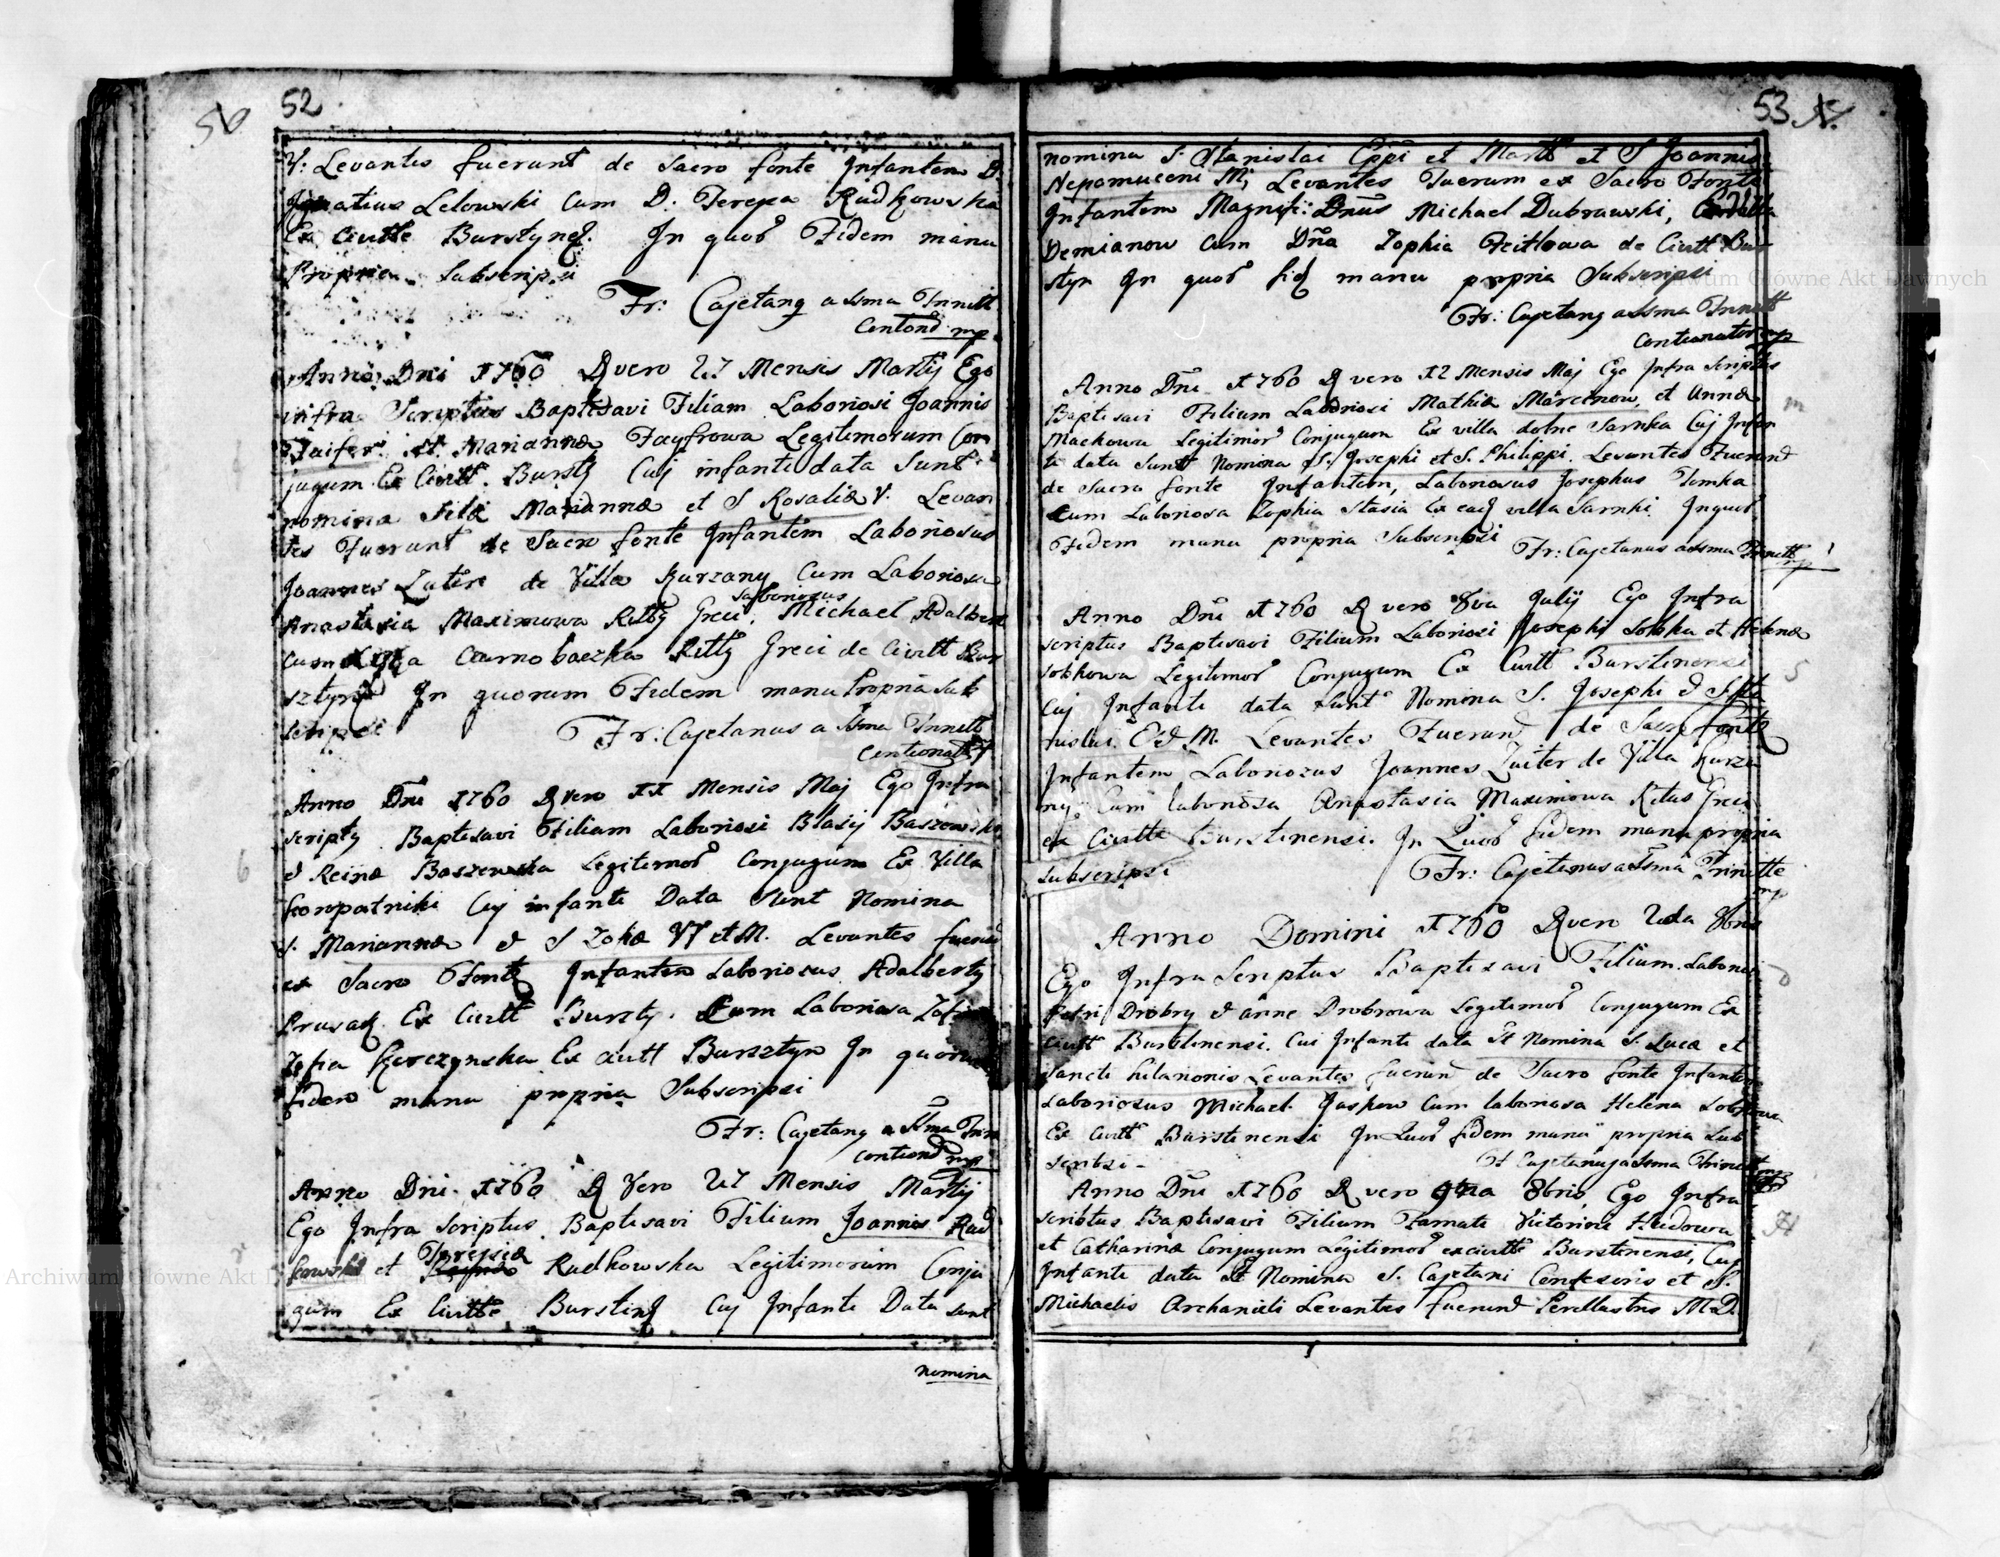 50
52
V: Levantes fuerunt de Sacro fonte Infantem D.
Ignatius Lelowski Cum D: Tereza Radkowska
Ex Civtte Burstyneſ. In quoꝝ Fidem manu
Propria Subscripsi
Fr: Cajetanꝫ a SSma Trinitt
Contionꝫ mp
Anno Dni 1760 D vero 27 Mensis Martij Ego
infra Scriptus Baptisavi Filiam Laboriosi Joannis
Faifer et Marianna Fayfrowa Legitimorum Con
jugum Ex Civtt. Bursty Cuj infanti data Sunt
nomina Marianna et S Rosalia V. Levan
tes Fuerunt de Sacro fonte Infantem Laboriosus
Joannes de Villa Kurzany Cum Laboriosa
Laboriozus
Anastasia Maximowa Ritty Greci, Michael Adalbert
Cum Czarnobaczka Ritty Greci de Civtt Bur
sztyn In quorum Fidem manu Propria Sub
scripsi
Fr: Cajetanus a SSma Trinitt
Contionat
Anno Dni 1760 D vero 11 Mensis Maj Ego Infra
scriptꝫ Baptisavi Filiam Laboriosi Blasij Baszewski
& Reina Baszewska Legitimoꝝ Conjugum Ex Villa
Konpatniki Cuj infanti Data Sunt Nomina
S. Marianna & S Zofia VV et M. Levantes fuerunt
ex Sacro Fonte Infantem Laboriosus Adalbertꝫ
Prusak Ex Civtt Burszty. Cum Laboriosa
Zofia Korczynska Ex Civtt Bursztyn In quorum
fidem manu propria Subscripsi
Fr: Cajetanꝫ a SSma Trini
Contionꝫ mp
Anno Dni. 1760 D Vero 27 Mensis Martij
Ego Infra Scriptus Baptisavi Filium Joannis Rad
Teresia
kowski et Radkowska Legitimorum Conju
gum Ex Civtte Burstinꝫ Cuj Infanti Data Sunt
nomina
53
nomina S. Stanislai Eppi et Mart et S Joannis
Nepomuceni M; Levantes Fuerunt ex Sacro Fonte
Infantem Magnifi: Dnus Michael Dubrawski,
Demianow Cum Dna Zophia de Civtt Bur
styn In quoꝝ fid manu propria Subscripsi
Fr: Cajetanꝫ a SSma Trinitt
Contionator mp
Anno Dni 1760 D vero 12 Mensis Maj Ego Infra Scriptus
Baptisavi Filium Laboriosi Mathia Marcinow, et Anna
Mackowa Legitimoꝝ Conjugum Ex villa dolne Sarnka Cuj Infan
ti data Sunt Nomina S. Josephi et S. Philippi. Levantes Fuerunt
de Sacro fonte Infantem, Laboriosus Josephus Tomka
Cum Laboriosa Zophia Stasia Ex eadꝫ villa Sarnki. In quoꝝ
Fidem manu propria Subscripsi Fr: Cajetanus a SSma Trinitt
mp
Anno Dni 1760 D vero 8va Julij Ego Infra
scriptus Baptisavi Filium Laboriosi Josephi Sobka et Helena
Sobkowa Legitimoꝝ Conjugum Ex Civtt Burstinensi
Cuj Infanti data Sunt Nomina S. Josephi & S. Sta
nislai. E & M. Levantes Fuerunt de Sacro fonte
Infantem Laboriozus Joannes Zaiter de Villa Kurza
ny Cum laboriosa Anastasia Maximowa Ritus Greci
ex Civtte Burstinensi. In Quoꝝ fidem manu propria
Subscripsi
Fr: Cajetanus a SSma Trinitte
mp
Anno Domini 1760 D vero 8bris
Ego Infra Scriptus Baptisavi Filium Laborios
Petri Drobry & Anne Drobrowa Legitimoꝝ Conjugum Ex
Civtt Burstinensi. Cui Infanti data St Nomina S. Luca et
Sancti Hilarionis Levantes fuerunt de Sacro fonte Infante
Laboriozus Michael Jaskow Cum laboriosa Helena Sobkowa
Ex Civtt Burstinensi In Quoꝝ fidem manu propria Sub
scribsi -
Fr Cajetanꝫ a SSma Trinitt
Anno Dni 1760 D vero 8bris, Ego Infra
scribtus Baptisavi Filium Famata Victoriana Heidowa
et Catharina Conjugum Legitimoꝝ ex civtte Burstinensi, Cuj
Infanti data St Nomina S. Cajetani Confesoris et S.
Michaelis Archanieli Levantes fuerunt Perillustris M.D.